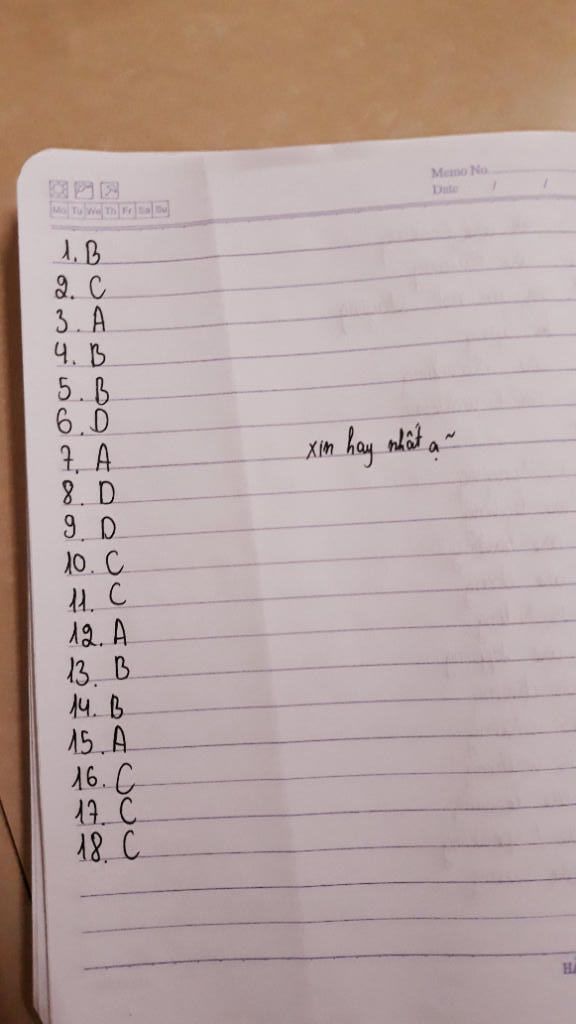 Memo No.
Date / /
Mo Tu We Th Fr Sa Su
1. B
2. C
3. A
4. B
5. B
6. D
7. A
xin hay nhất ạ ~
8. D
9. D
10. C
11. C
12. A
13. B
14. B
15. A
16. C
17. C
18. C